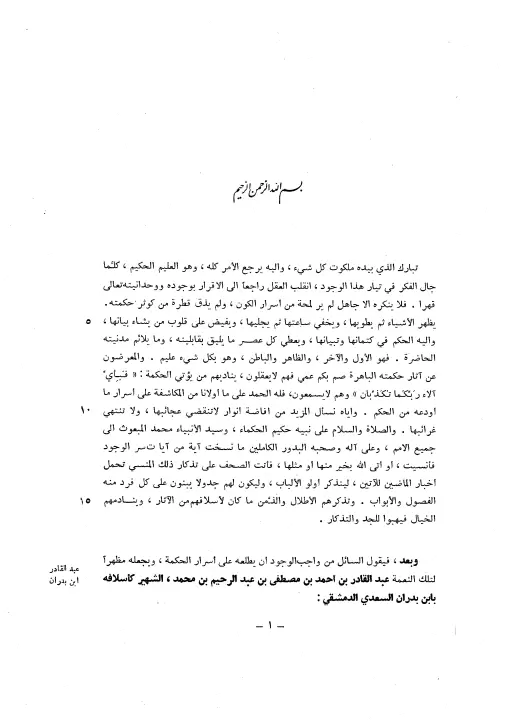 بسم الله الرحمن الرحيم
تبارك الذي بيده ملكوت كل شيء ، واليه يرجع الأمر كله ، وهو العليم الحكيم ، كلما
جال الفكر في تيار هذا الوجود ، انقلب العقل راجعاً الى الاقرار بوجوده ووحدانيته تعالى
قهرا . فلا ينكره الا جاهل لم ير لمحة من أسرار الكون ، ولم يذق قطرة من كوثر حكمته .
يظهر الأشياء ثم يطويها ، ويخفي ساعتها ثم يجليها ، ويفيض على قلوب من يشاء بيانها ، ٥
واليه الحكم في كتمانها وتبيانها ، ويعطي كل عصر ما يليق بقابليته ، وما يلائم مدنيته
الحاضرة . فهو الأول والآخر ، والظاهر والباطن ، وهو بكل شيء عليم . والمعرضون
عن آثار حكمته الباهرة صم بكم عمي فهم لايعقلون ، يناديهم من يؤتي الحكمة : « فبأي
آلاء ربكما تكذبان » وهم لايسمعون ، فله الحمد على ما أولانا من المكاشفة على أسرار ما
اودعه من الحكم . واياه نسأل المزيد من افاضة انوار لاتنقضي عجائبها ، ولا تنتهي ١٠
غرائبها . والصلاة والسلام على نبيه حكيم الحكماء ، وسيد الأنبياء محمد المبعوث الى
جميع الامم ، وعلى آله وصحبه البدور الكاملين ما نسخت آية من آيات سر الوجود
فانسيت ، او اتى الله بخير منها او مثلها ، فاتت الصحف على تذكار ذلك المنسي تحمل
أخبار الماضين للآتين ، ليتذكر اولو الألباب ، وليكون لهم جدولا يبنون على كل فرد منه
الفصول والأبواب . وتذكرهم الأطلال والدمن ما كان لأسلافهم من الآثار ، وينادمهم ١٥
الخيال فيهبوا للجد والتذكار .
وبعد ، فيقول السائل من واجب الوجود ان يطلعه على أسرار الحكمة ، ويجعله مظهراً
لتلك النعمة عبد القادر بن احمد بن مصطفى بن عبد الرحيم بن محمد ، الشهير كأسلافه
بابن بدران السعدي الدمشقي :
عبد القادر
ابن بدران
— ١ —